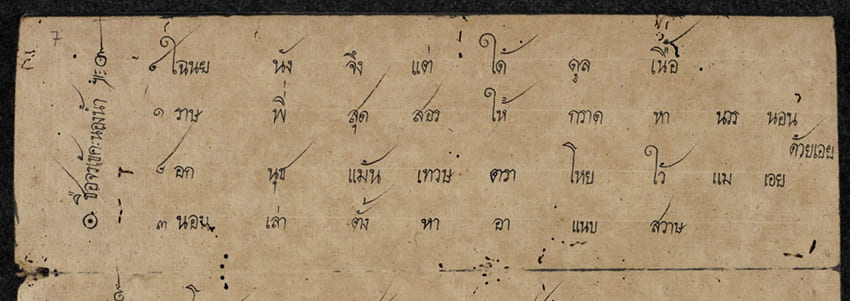 7
๏ ชื่อจรเข้คะนองน้ำ ฯะ๛
ไฉนย นัง จึ่ง แต่ ได้ ดูล เนื้อ
๑ ราษ พี่ สุด สอร ให้ กราด หา นวร นอน
๒ อก นุช แม้น เทวษ ตรา โหย ไว้ แม เอย
ด้วยเอย
๓ นอน เล่า ตั้ง หา อา แนบ สวาษ